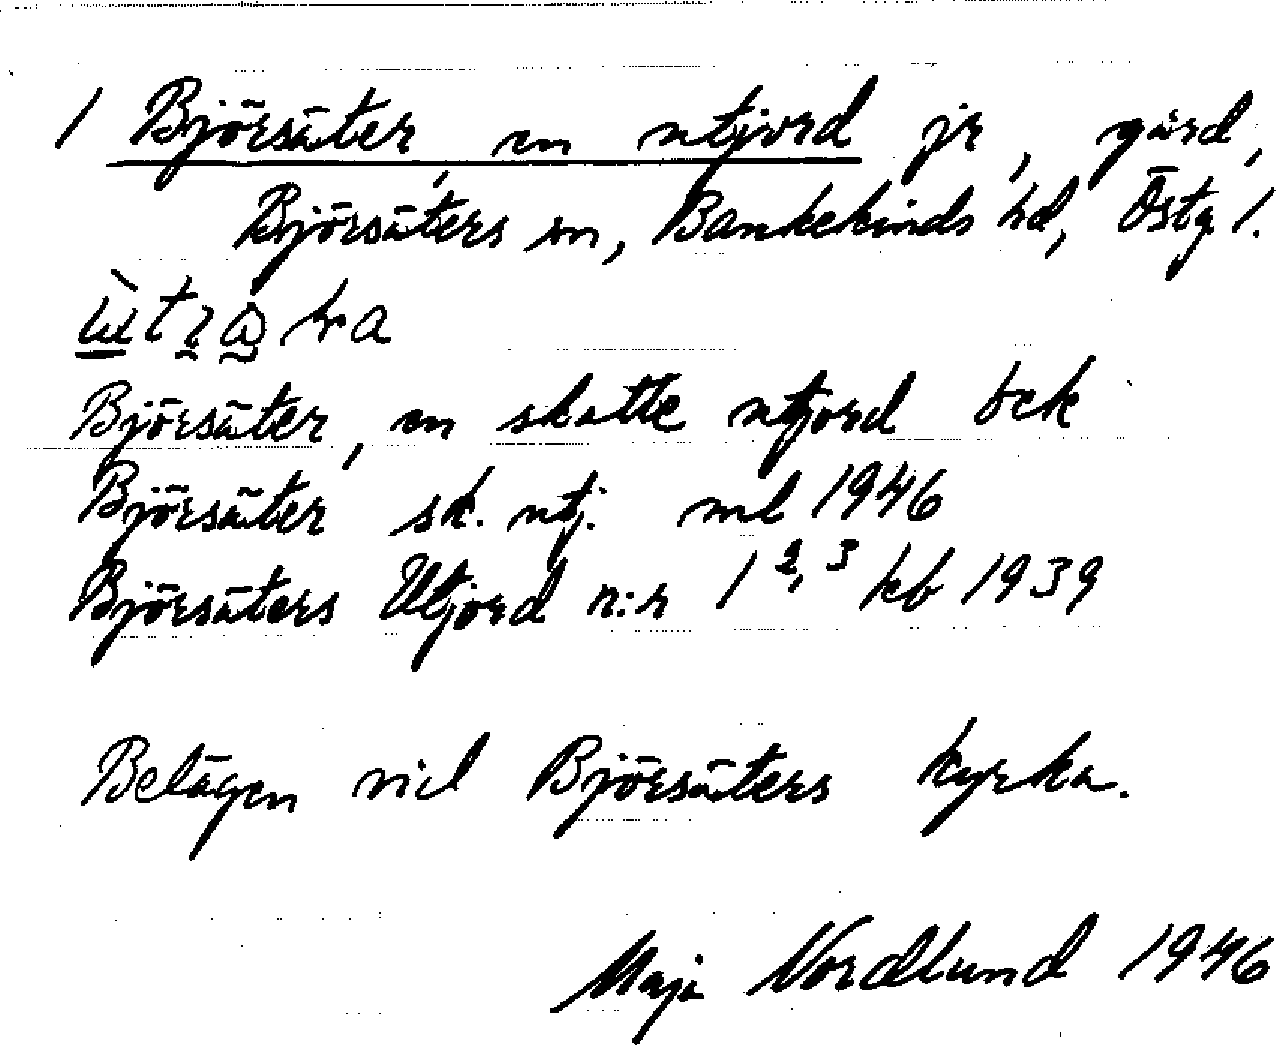 1 Björsäter, en utjord jr, gård,
Björsäters sn, Bankekinds hd, Östg l.
Björsäter, en skatte utjord bek
Björsäter sk. utj. ml 1946
Björsäters Utjord n:r 1 2, 3 kb 1939
Belägen vid Björsäters kyrka.
Maja Nordlund 1946